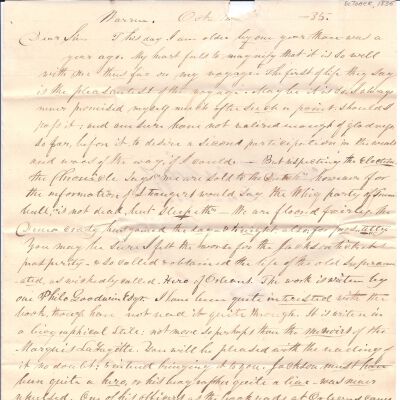 OCTOBER, 1835
Warren. Oct. —35.
Dear Sir This day I am older by one year than I was a
year ago. My heart fails to magnify that it is so well
with me thus far on my voyage. The first of life they say
is the pleasantest of the voyage. Maybe it is so. I always
never promised myself much after such a point should I
pass it; and am sure have not noticed enough of gladness
so far, before it to desire a second participation in the
and woes of the way, if I could. — But respecting the Election
the Chronicle says we are sold to the Dutch. However for
the information of strangers I would say the Whig party of
is not dead, but sleepeth — We are floored fairly, the
Democracy has gained the day &
You may be sure I felt the worse for the Jacks
prosperity & so called & obtained the life of the old
as wickedly called, Hero of Orleans. The work is written by
one Philo Goodwin Esqr. I have been quite interested with the
book, though have not read it quite through. It is written in
a biographical stile: not more so perhaps than the memoirs of the
Marquis LaFayette. You will be pleased with the reading of
it no doubt; & intend bringing it to you. Jackson must have
been quite a hero, or his biographer quite a liar — was never
One of his officers as the book reads at Orleans came